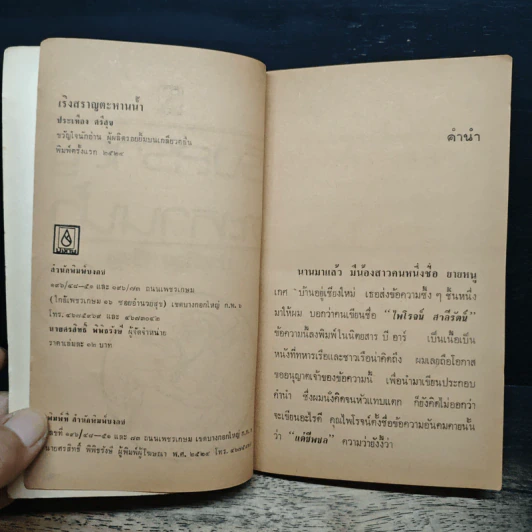 เริงสราญตะหานน้ำ
ประเทือง ศรีสุข
ขวัญใจนักอ่าน ผู้ผลิตรอยยิ้มบนเกลียวคลื่น
พิมพ์ครั้งแรก ๒๕๒๙
สำนักพิมพ์บงกช
๑๙๖/๔๘-๕๑ และ ๑๙๖/๗๗ ถนนเพชรเกษม
(ใกล้เพชรเกษม ๑๖ ซอยอำนวยสุข) เขตบางกอกใหญ่ ก.ท. ๖
ผู้จัดจำหน่าย
ราคาเล่มละ ๑๒ บาท
พิมพ์ที่ สำนักพิมพ์บงกช
และ ๗๗ ถนนเพชรเกษม เขตบางกอกใหญ่ ก.ท.
ผู้พิมพ์ผู้โฆษณา พ.ศ. ๒๕๒๙ โทร.
คำนำ
นานมาแล้ว มีน้องสาวคนหนึ่งชื่อ ยายหนู
เกศ บ้านอยู่เชียงใหม่ เธอส่งข้อความซึ้ง ๆ ชิ้นหนึ่ง
มาให้ผม บอกว่าคนเขียนชื่อ "ไพโรจน์ สาลีรัตน์"
ข้อความนี้ลงพิมพ์ในนิตยสาร บี อาร์ เป็นเนื้อเป็น
หนังที่ทหารเรือและชาวเรือน่าคิดถึง ผมเลยถือโอกาส
ขออนุญาตเจ้าของข้อความนี้ เพื่อนำมาเขียนประกอบ
คำนำ ซึ่งผมนั่งคิดจนหัวแทบแตก ก็ยังคิดไม่ออกว่า
จะเขียนอะไรดี คุณไพโรจน์ตั้งชื่อข้อความอันคมคายนั้น
ว่า "แด่ชีพชล" ความว่ายังงี้ว่า